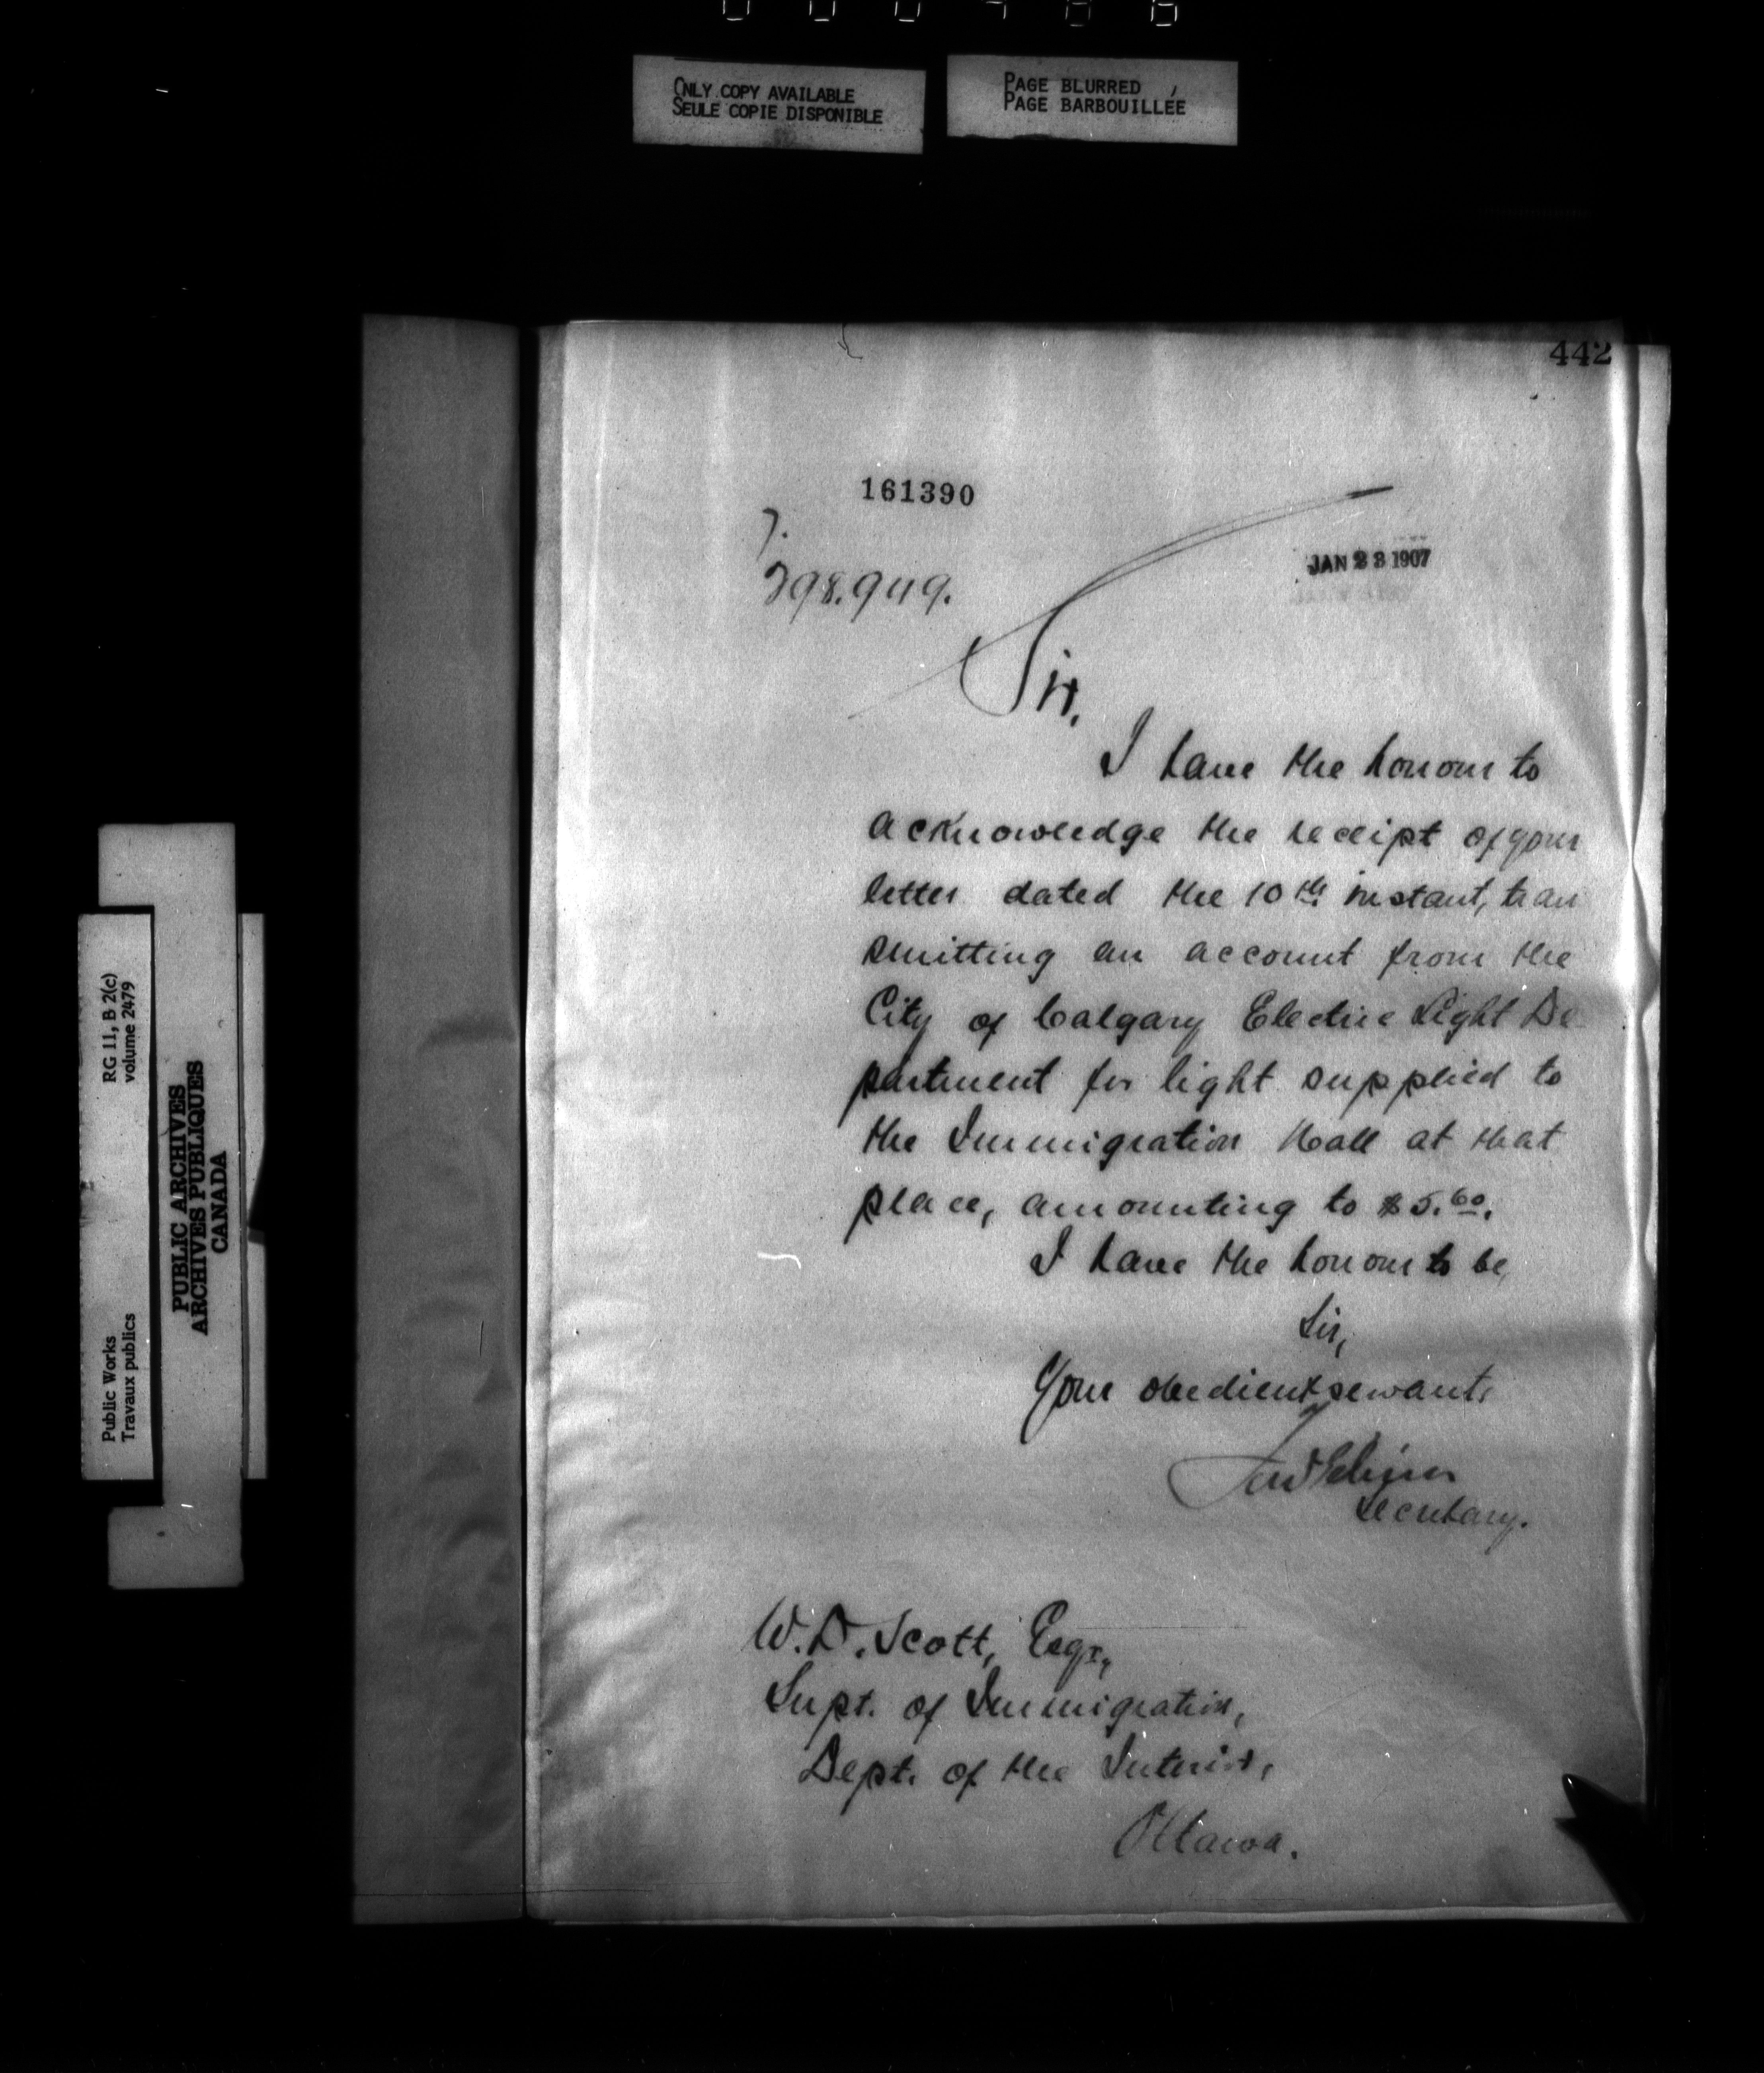 ONLY COPY AVAILABLE
SEULE COPIE DISPONIBLE
PAGE BLURRED
PAGE BARBOUILLÉE
442
161390
JAN 23 1907
298.949.
Sir,
I have the honour to
acknowledge the receipt of your
letter dated the 10th instant, tran
smitting an account from the
City of Calgary Electric Light De
partment for light supplied to
the Immigration Hall at that
place, amounting to $5.60.
I have the honour to be,
Sir,
Your obedient servant,
Secretary.
W. D. Scott, Esqr.,
Supt. of Immigration,
Dept. of the Interior,
Ottawa.
RG 11, B 2(c)
volume 2479
Public Works
Travaux publics
PUBLIC ARCHIVES
ARCHIVES PUBLIQUES
CANADA